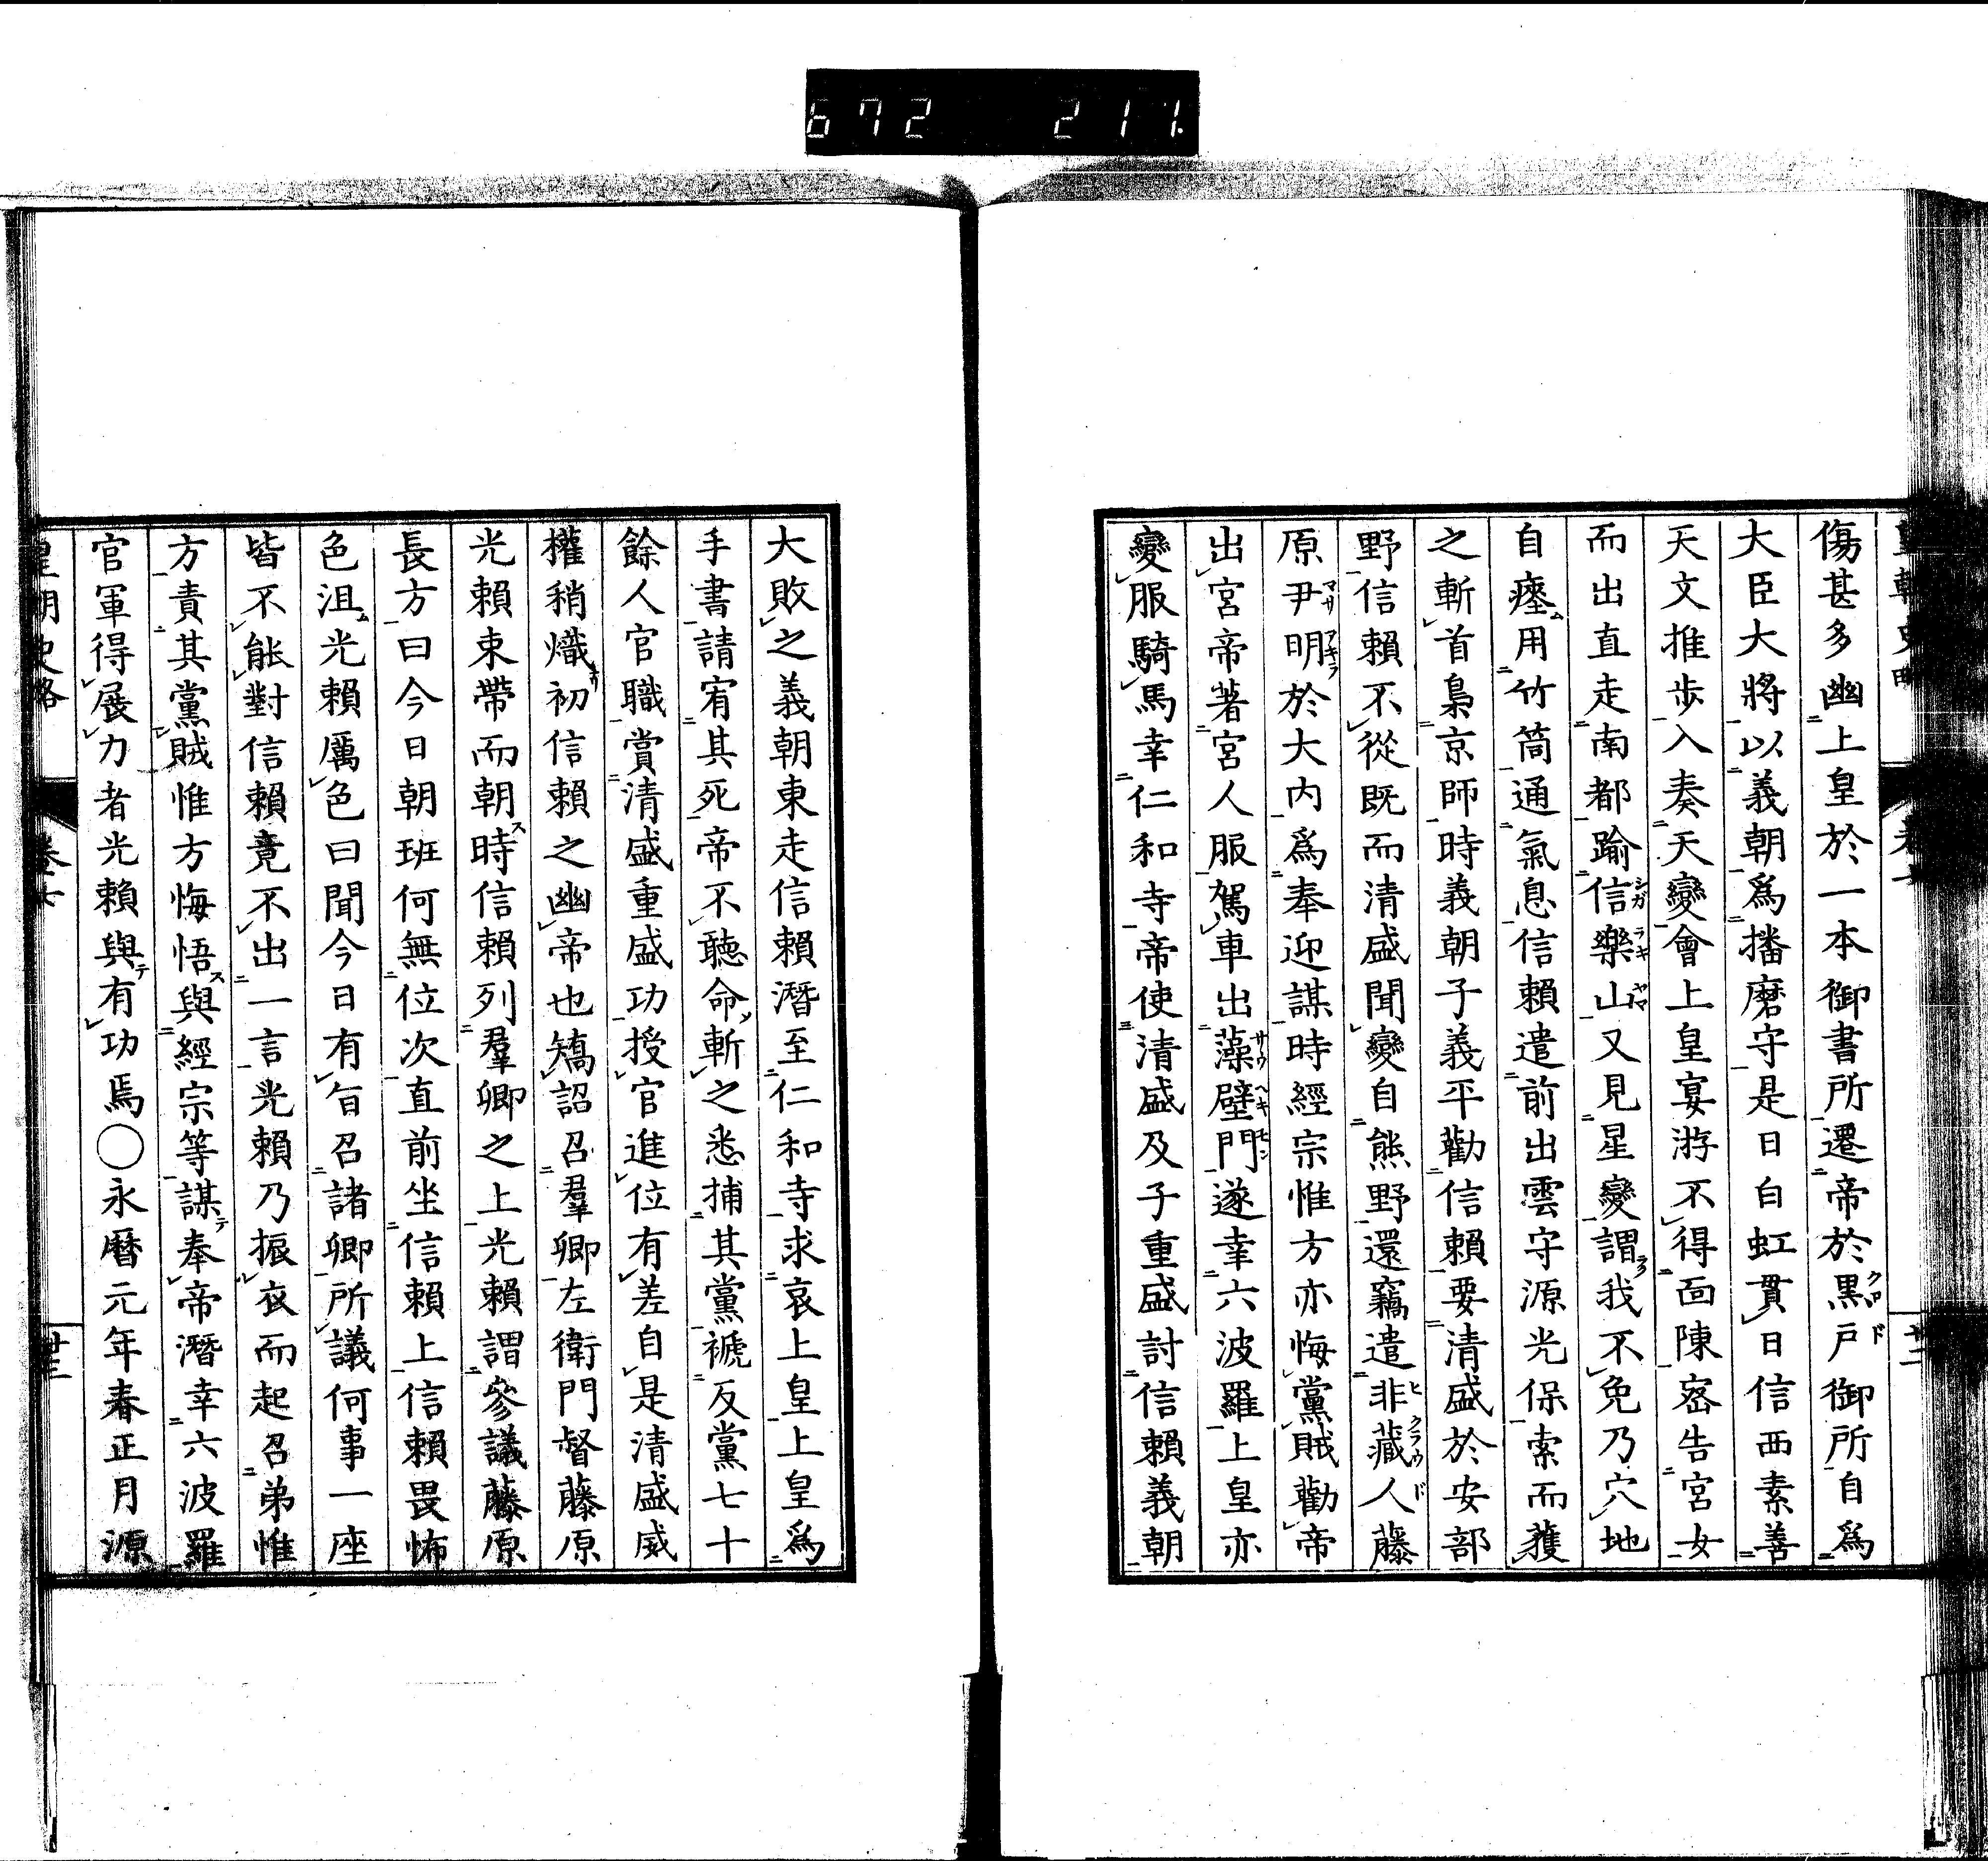 672 211
傷甚多幽上皇於一本御書所遷帝於黒戸御所自爲
大臣大將以義朝爲播磨守是日白虹貫日信西素善
天文推步入奏天變會上皇宴游不得面陳密告宮女
而出直走南都踰信樂山又見星變謂我不免乃穴地
自瘞用竹筒通氣息信賴遣前出雲守源光保索而獲
之斬首梟京師時義朝子義平勸信賴要清盛於安部
野信賴不從既而清盛聞變自熊野還竊遣非藏人藤
原尹明於大内爲奉迎謀時經宗惟方亦悔黨賊勸帝
出宮帝著宮人服駕車出藻壁門遂幸六波羅上皇亦
變服騎馬幸仁和寺帝使清盛及子重盛討信賴義朝
大敗之義朝東走信賴潛至仁和寺求哀上皇上皇爲
手書請宥其死帝不聽命斬之悉捕其黨褫反黨七十
餘人官職賞清盛重盛功授官進位有差自是清盛威
權稍熾初信賴之幽帝也矯詔召羣卿左衛門督藤原
光賴束帶而朝時信賴列羣卿之上光賴謂參議藤原
長方曰今日朝班何無位次直前坐信賴上信賴畏怖
色沮光賴厲色曰聞今日有旨召諸卿所議何事一座
皆不能對信賴竟不出一言光賴乃振衣而起召弟惟
方責其黨賊惟方悔悟與經宗等謀奉帝潛幸六波羅
官軍得展力者光賴與有功焉〇永曆元年春正月源
皇朝史略 卷七 廿三